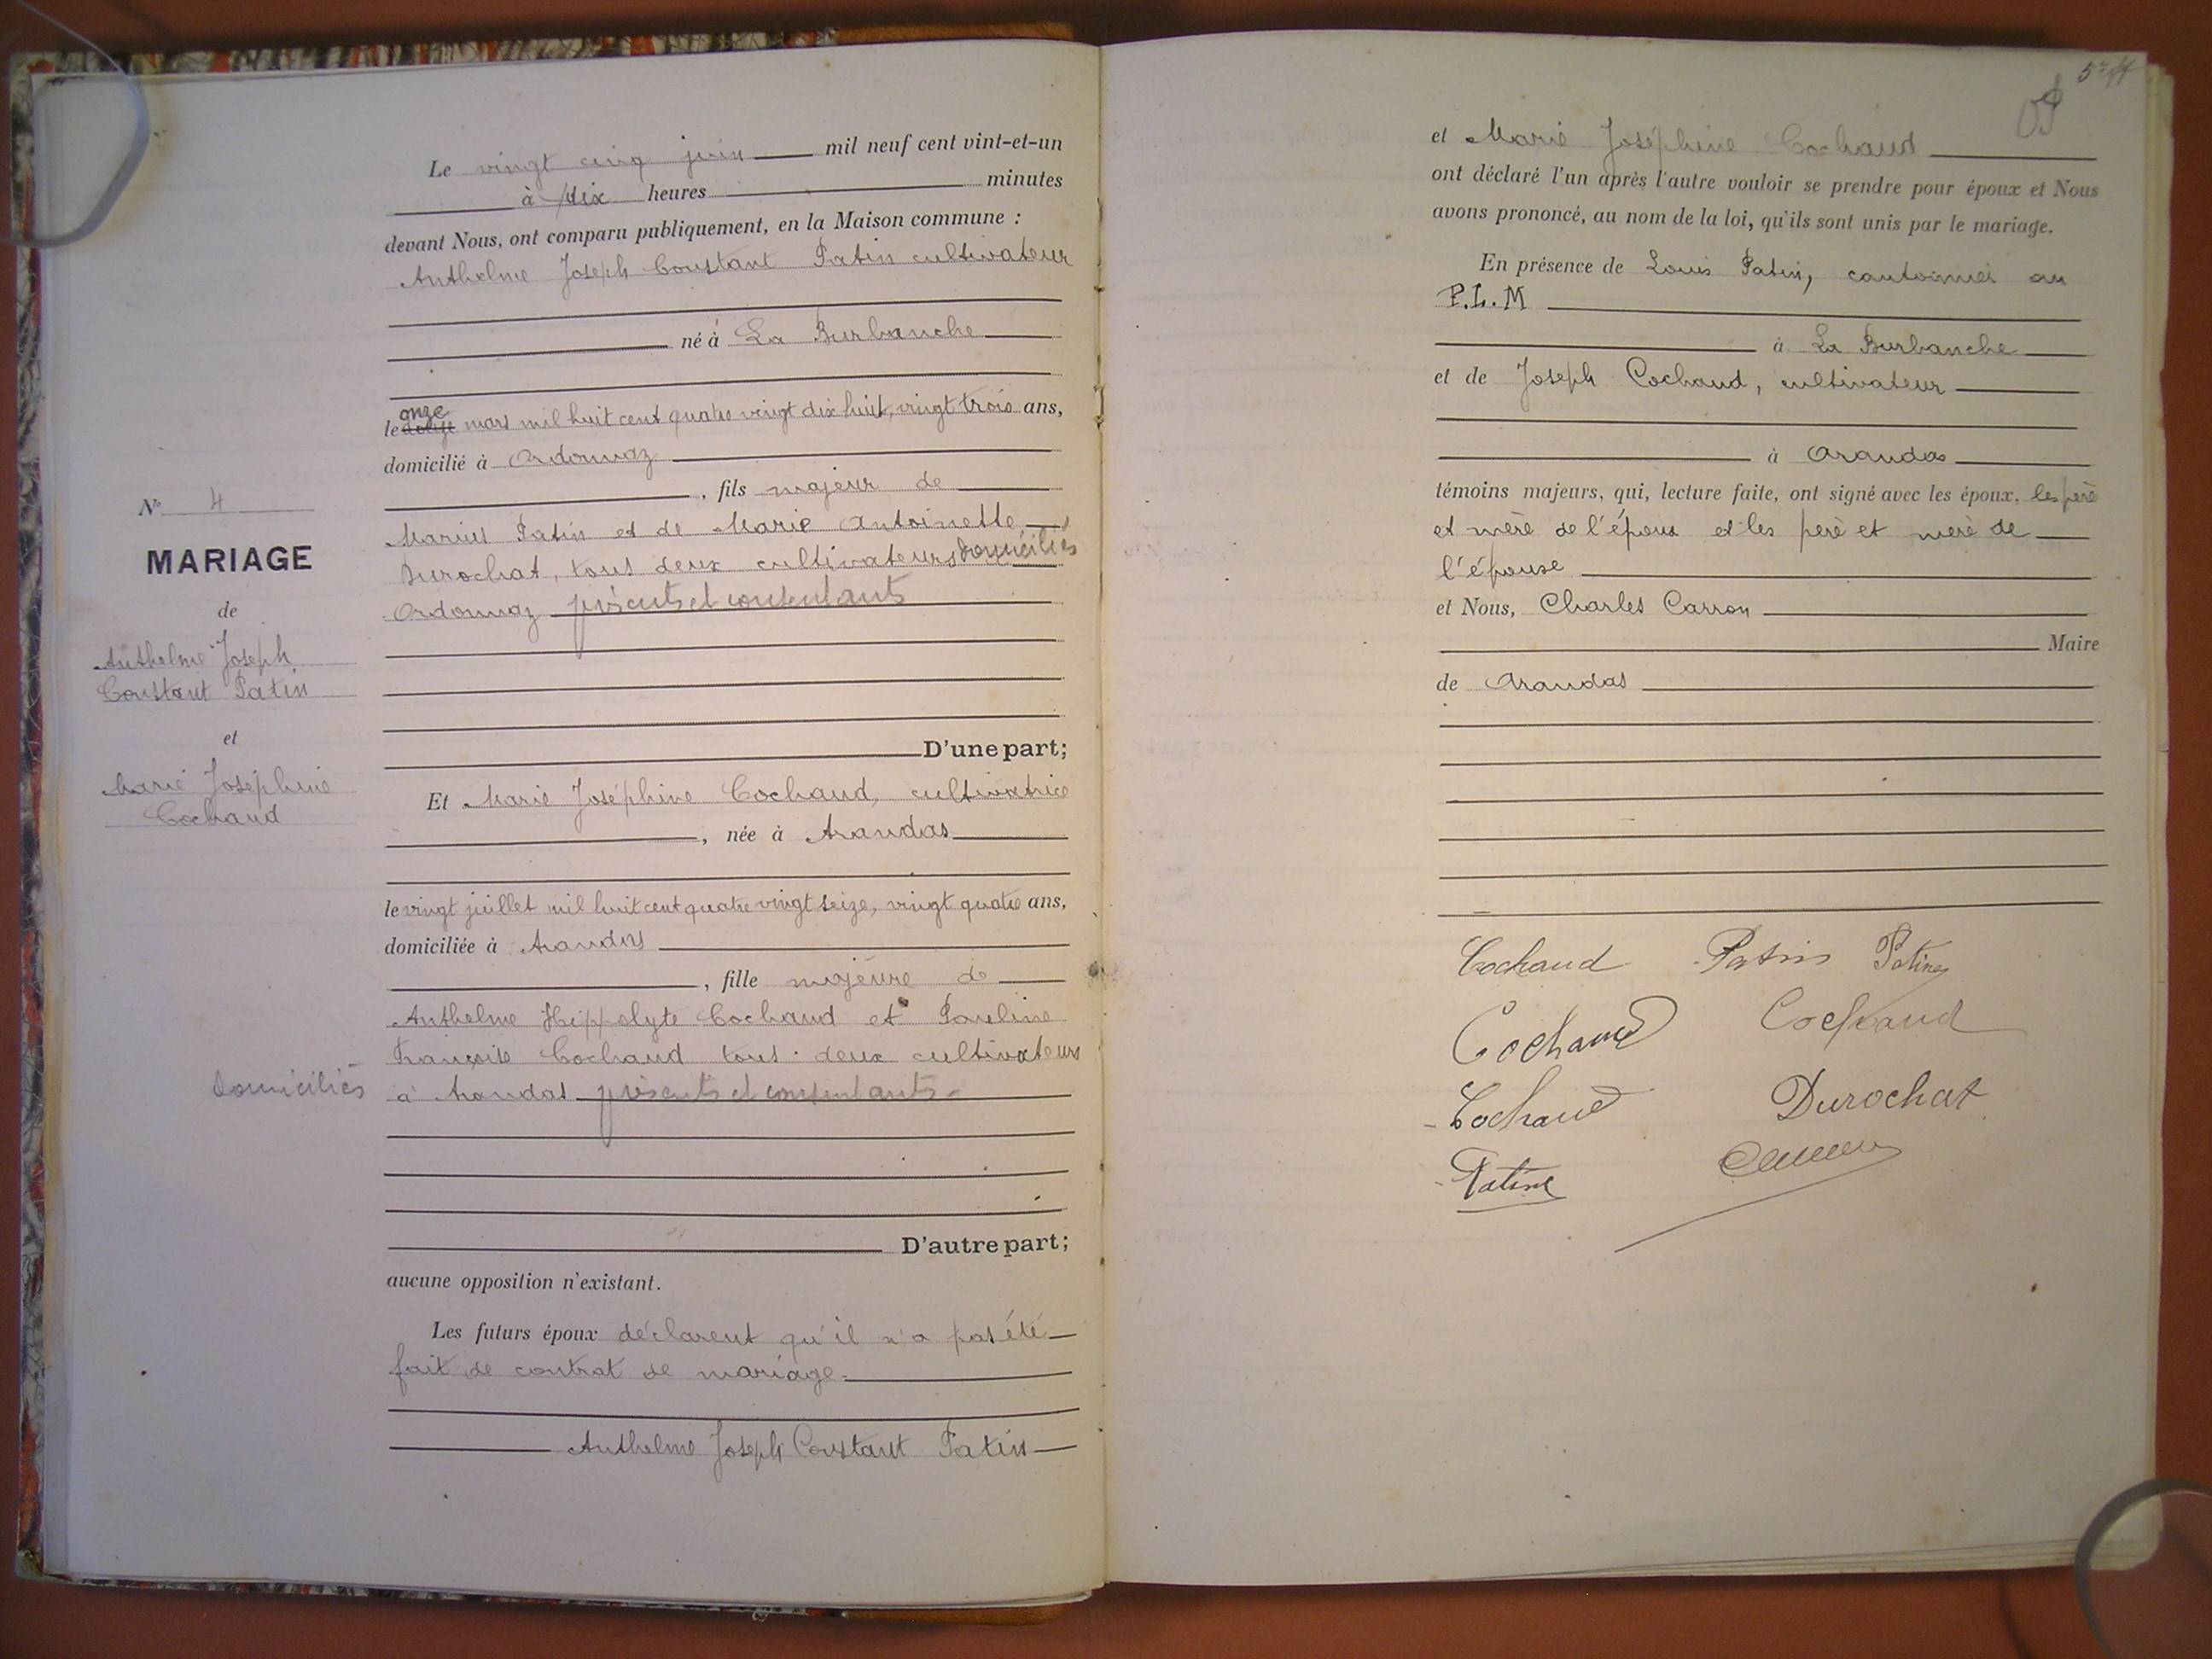 Le vingt cinq juin mil neuf cent vint-et-un
à dix heures minutes
devant Nous, ont comparu publiquement, en la Maison commune :
Anthelme Joseph Constant Patin cultivateur
né à La Burbanche
onze
le mars mil huit cent quatre vingt dix huit, vingt trois ans,
domicilié à Ordonnaz
, fils majeur de
Marius Patin et de Marie Antoinette
Durochat, tous deux cultivateurs domiciliés
Ordonnaz présents et consentants
D'une part;
Et Marie Joséphine Cochaud, cultivatrice
, née à Arandas
le vingt juillet mil huit cent quatre vingt seize, vingt quatre ans,
domiciliée à Arandas
, fille majeure de
Anthelme Hippolyte Cochaud et Pauline
Françoise Cochaud tous deux cultivateurs
domiciliés à Arandas présents et consentants
D'autre part;
aucune opposition n'existant.
Les futurs époux déclarent qu'il n'a pas été
fait de contrat de mariage.
Anthelme Joseph Constant Patin
N° 4
MARIAGE
de
Anthelme Joseph
Constant Patin
et
Marie Joséphine
Cochaud
et Marie Joséphine Cochaud
ont déclaré l'un après l'autre vouloir se prendre pour époux et Nous
avons prononcé, au nom de la loi, qu'ils sont unis par le mariage.
En présence de Louis Patin, cantonnier au
P.L.M
à La Burbanche
et de Joseph Cochaud, cultivateur
à Arandas
témoins majeurs, qui, lecture faite, ont signé avec les époux, les père
et mère de l'époux et les père et mère de
l'épouse
et Nous, Charles Carron
Maire
de Arandas
Cochaud Patin Patin
Cochaud Cochaud
Cochaud Durochat
Patin